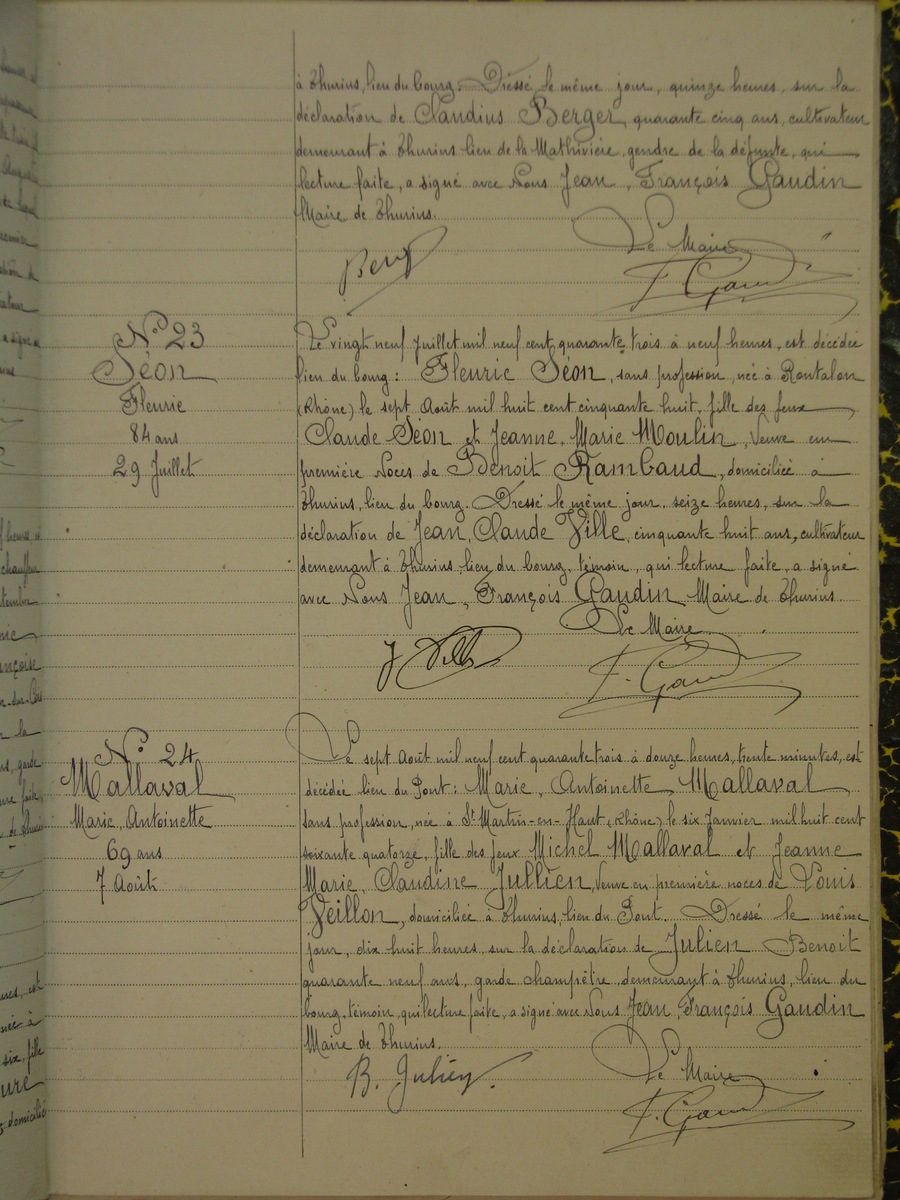 à Thurins, lieu du bourg. Dressé le même jour, quinze heures, sur la
déclaration de Claudius Berger, quarante cinq ans, cultivateur
demeurant à Thurins lieu de la Mathivière, gendre de la défunte, qui
lecture faite, a signé avec Nous Jean, François Gaudin
Maire de Thurins.
Le Maire
N° 23
Séon
Fleurie
84 ans
29 Juillet
Le vingt neuf Juillet mil neuf cent quarante trois à neuf heures, est décédée
lieu du bourg : Fleurie Séon, sans profession, née à Rontalon
(Rhône) le sept Août mil huit cent cinquante huit, fille des feux
Claude Séon et Jeanne, Marie Moulin, Veuve en
première Noces de Benoit Rambaud, domiciliée à
Thurins, lieu du bourg. Dressé le même jour, seize heures, sur la
déclaration de Jean, Claude Ville, cinquante huit ans, cultivateur
demeurant à Thurins lieu du bourg, témoin, qui lecture faite, a signé
avec Nous Jean, François Gaudin Maire de Thurins.
Le Maire
J Ville
N° 24
Mallaval
Marie, Antoinette
69 ans
7 Août
Le sept Août mil neuf cent quarante trois à douze heures, trente minutes, est
décédée lieu du Pont : Marie, Antoinette Mallaval
sans profession, née à St Martin-en-Haut (Rhône) le six Janvier mil huit cent
soixante quatorze, fille des feux Michel Mallaval et Jeanne
Marie, Claudine Jullien, Veuve en première noces de Louis
Veillon, domiciliée à Thurins, lieu du Pont. Dressé le même
jour, dix huit heures, sur la déclaration de Julien Benoit
quarante neuf ans, garde champêtre, demeurant à Thurins, lieu du
bourg, témoin, qui lecture faite, a signé avec Nous Jean, François Gaudin
Maire de Thurins.
B. Julien
Le Maire